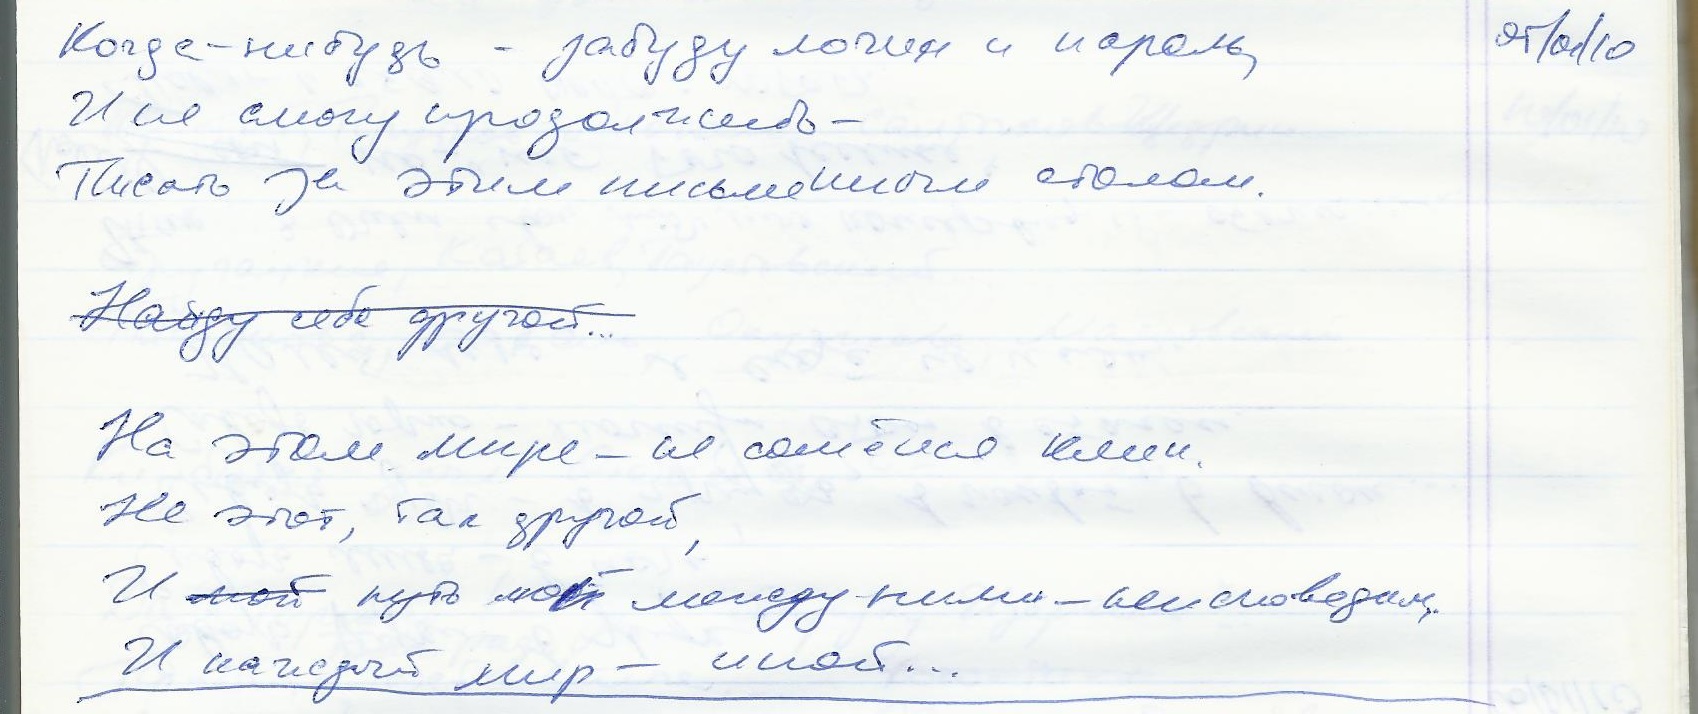 Когда-нибудь - забуду логин и пароль, 05/01/10
И не смогу продолжить -
Писать за этим письменным столом.
Найду себе другой...
На этом мире - не сошёлся клин.
Не этот, так другой,
И мой путь мой между ними - неисповедим,
И каждый мир - иной...